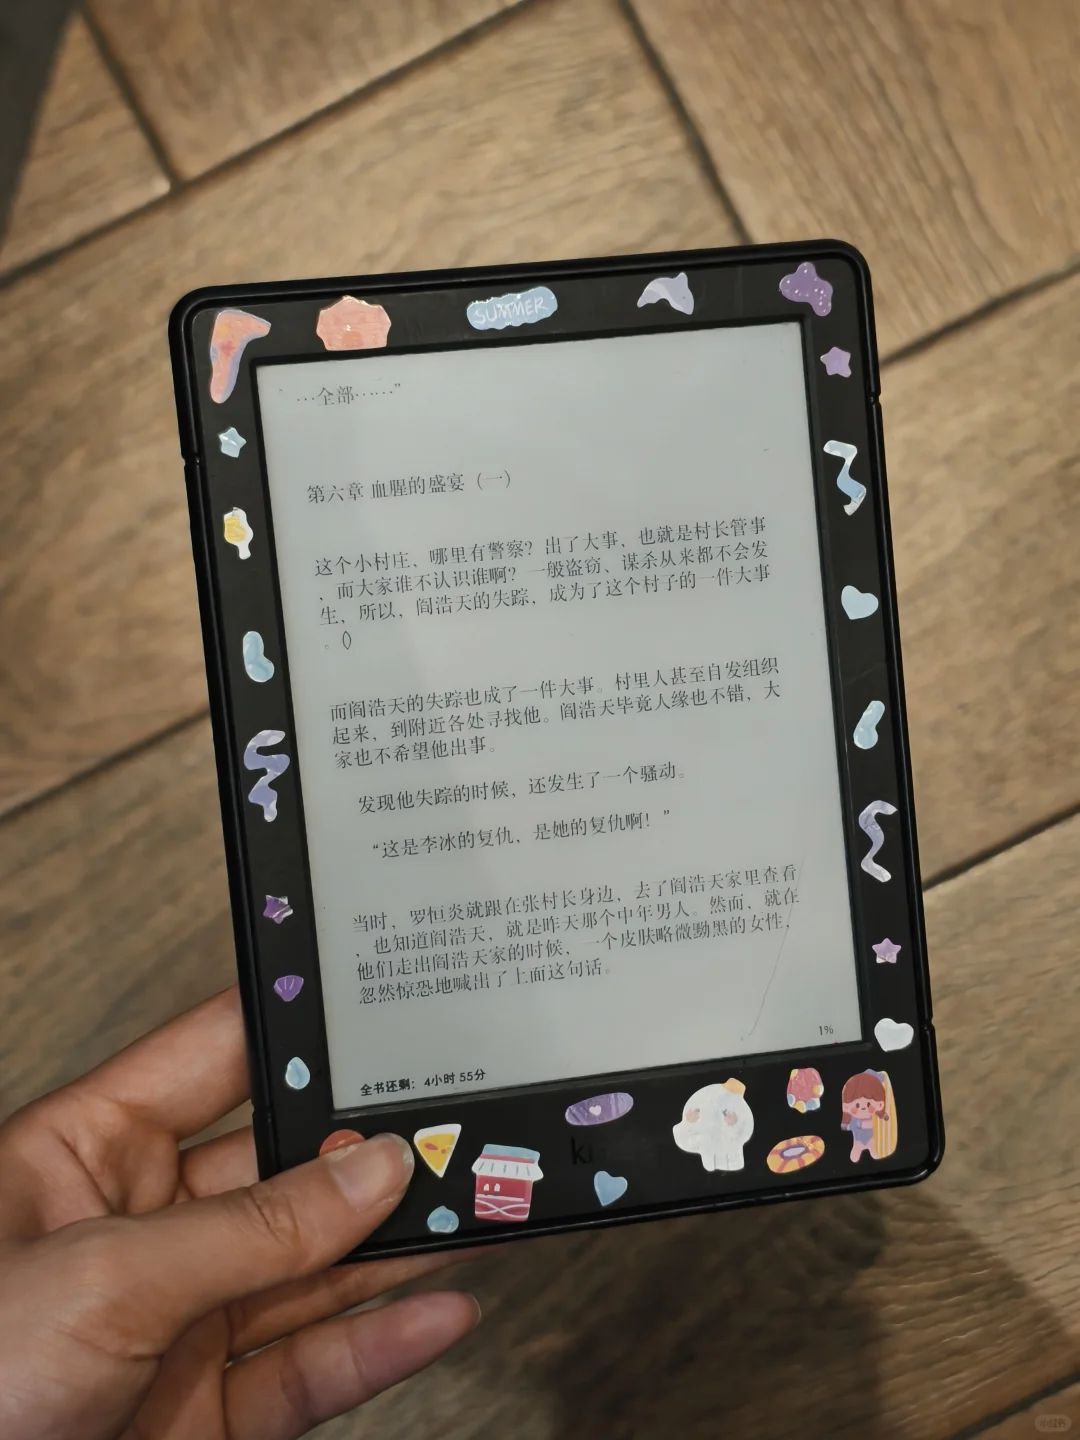 SUMMER
…全部……”
第六章 血腥的盛宴（一）
这个小村庄、哪里有警察？出了大事、也就是村长管事
、而大家谁不认识谁啊？一般盗窃、谋杀从来都不会发
生，所以，阎浩天的失踪，成为了这个村子的一件大事
。
而阎浩天的失踪也成了一件大事。村里人甚至自发组织
起来，到附近各处寻找他。阎浩天毕竟人缘也不错，大
家也不希望他出事。
发现他失踪的时候，还发生了一个骚动。
“这是李冰的复仇，是她的复仇啊！”
当时，罗恒炎就跟在张村长身边，去了阎浩天家里查看
、也知道阎浩天，就是昨天那个中年男人。然而，就在
他们走出阎浩天家的时候，一个皮肤略微黝黑的女性，
忽然惊恐地喊出了上面这句话。
1%
全书还剩：4小时 55分
ki
小红书